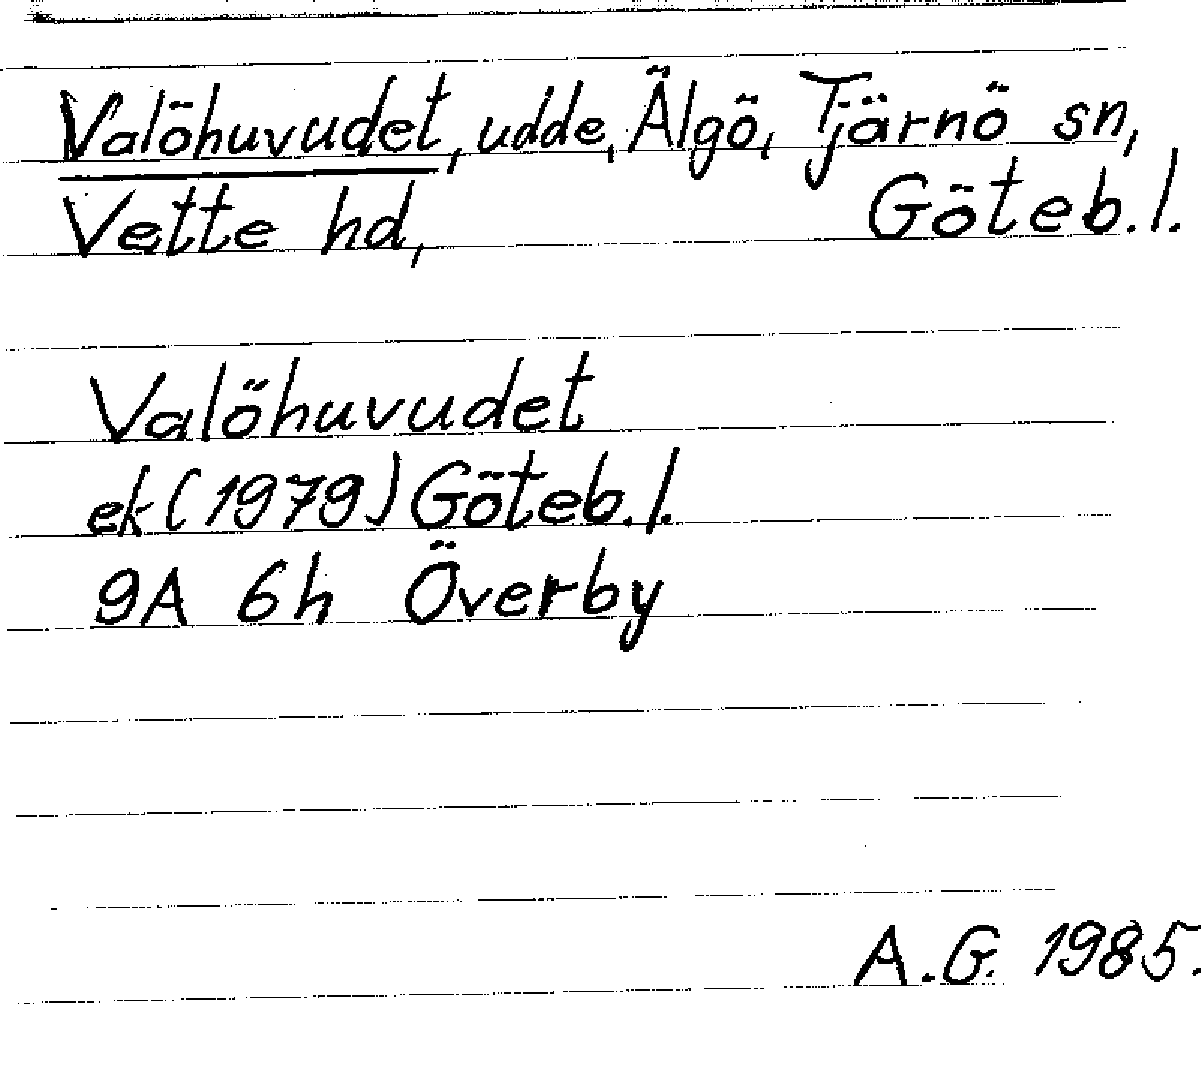 Valöhuvudet, udde, Älgö, Tjärnö sn,
Vette hd, Göteb.l.
Valöhuvudet
ek (1979) Göteb.l.
9A 6h Överby
A.G. 1985.